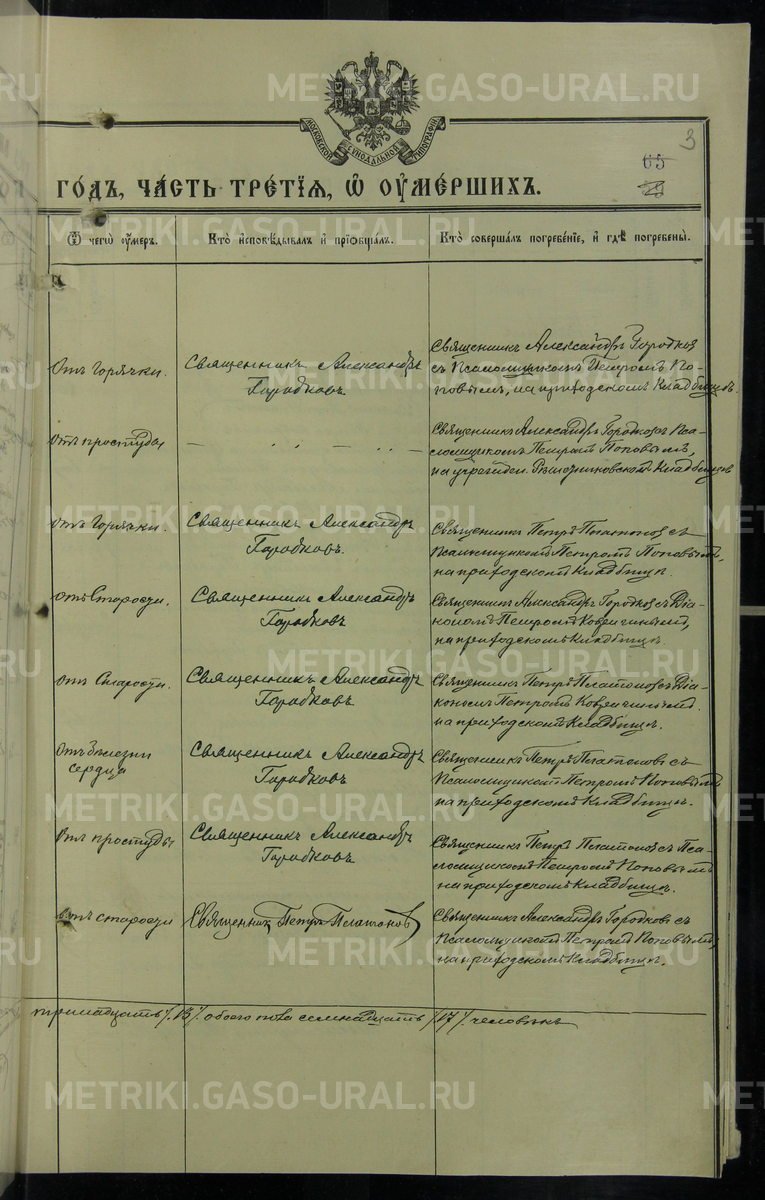 METRIKI.GASO-URAL.RU
МОСКОВСКОЙ СѴНОДАЛЬНОЙ ТИПОГРАФІИ
3
65
го́дъ, ча́сть тре́тїѧ, ѡ҆ ᲂу҆ме́ршихъ.
Ѿ чегѡ̀ ᲂу҆́меръ.
Кто̀ и҆сповѣ́дывалъ и҆ прїѡбща́лъ.
Кто̀ соверша́лъ погребе́нїе, и҆ гдѣ̀ погребены̀.
Отъ горячки.
Священникъ Александръ
Городковъ
Священникъ Александръ Городков
съ Псаломщикомъ Петромъ По-
повымъ, на приходскомъ Кладбищѣ.
Отъ простуды
— „ — „ —
Священникъ Александръ Городковъ Пса-
ломщикомъ Петромъ Поповымъ,
на Кладбищѣ
отъ горячки.
Священникъ Александръ
Городковъ.
Священникъ Петръ Платоновъ съ
Псаломщикомъ Петромъ Поповымъ,
на приходскомъ Кладбищѣ.
отъ Старости.
Священникъ Александръ
Городковъ
Священникъ Александръ Городков съ Діа-
кономъ Петромъ
на приходскомъ Кладбищѣ
отъ Старости.
Священникъ Александръ
Городковъ
Священникъ Петръ Платоновъ Діа-
кономъ Петромъ
на приходскомъ Кладбищѣ.
Отъ болезни
сердца
Священникъ Александръ
Городковъ
Священникъ Петръ Платоновъ съ
Псаломщикомъ Петромъ Поповымъ
на приходскомъ Кладбищѣ.
Отъ простуды
Священникъ Александръ
Городковъ
Священникъ Петръ Платоновъ съ Пса-
ломщикомъ Петромъ Поповымъ
на приходскомъ Кладбищѣ.
отъ старости
Священникъ Петръ Платоновъ
Священникъ Александръ Городковъ съ
Псаломщикомъ Петромъ Поповымъ,
на приходскомъ Кладбищѣ.
тринадцать /.13/. обоего пола семнадцать /17/. человѣкъ